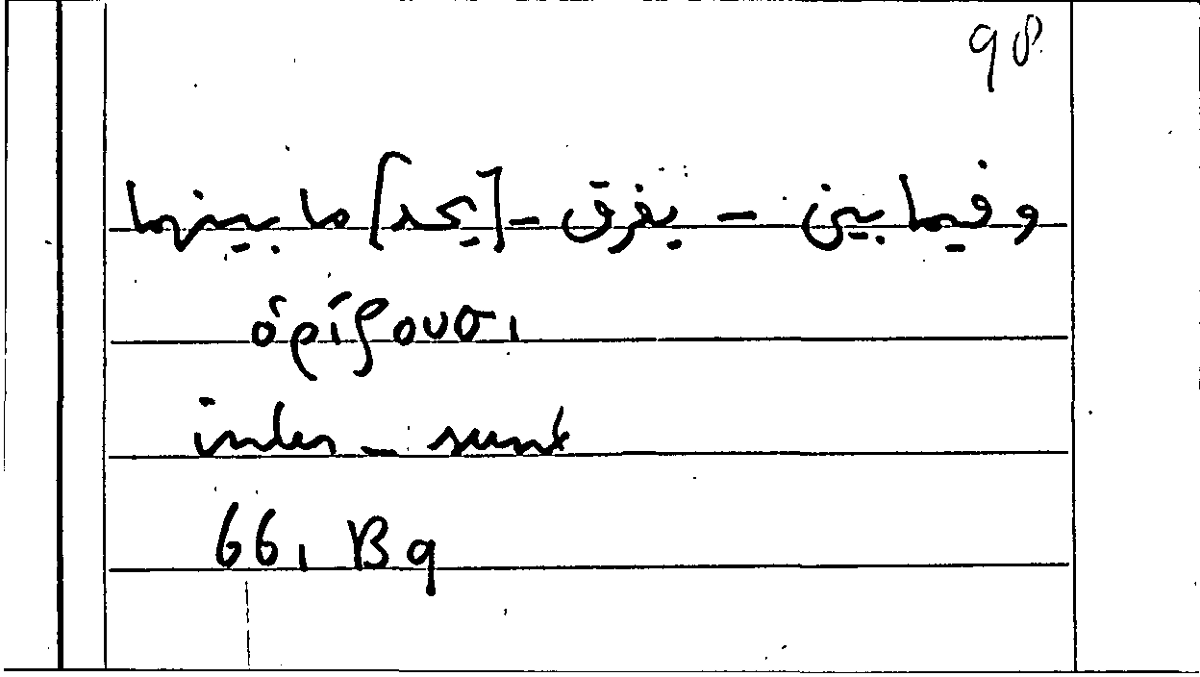 98
وفيما بين - يفرق - [يحد] ما بينهما
ὁρίζουσι
inter - sunt
66, B9